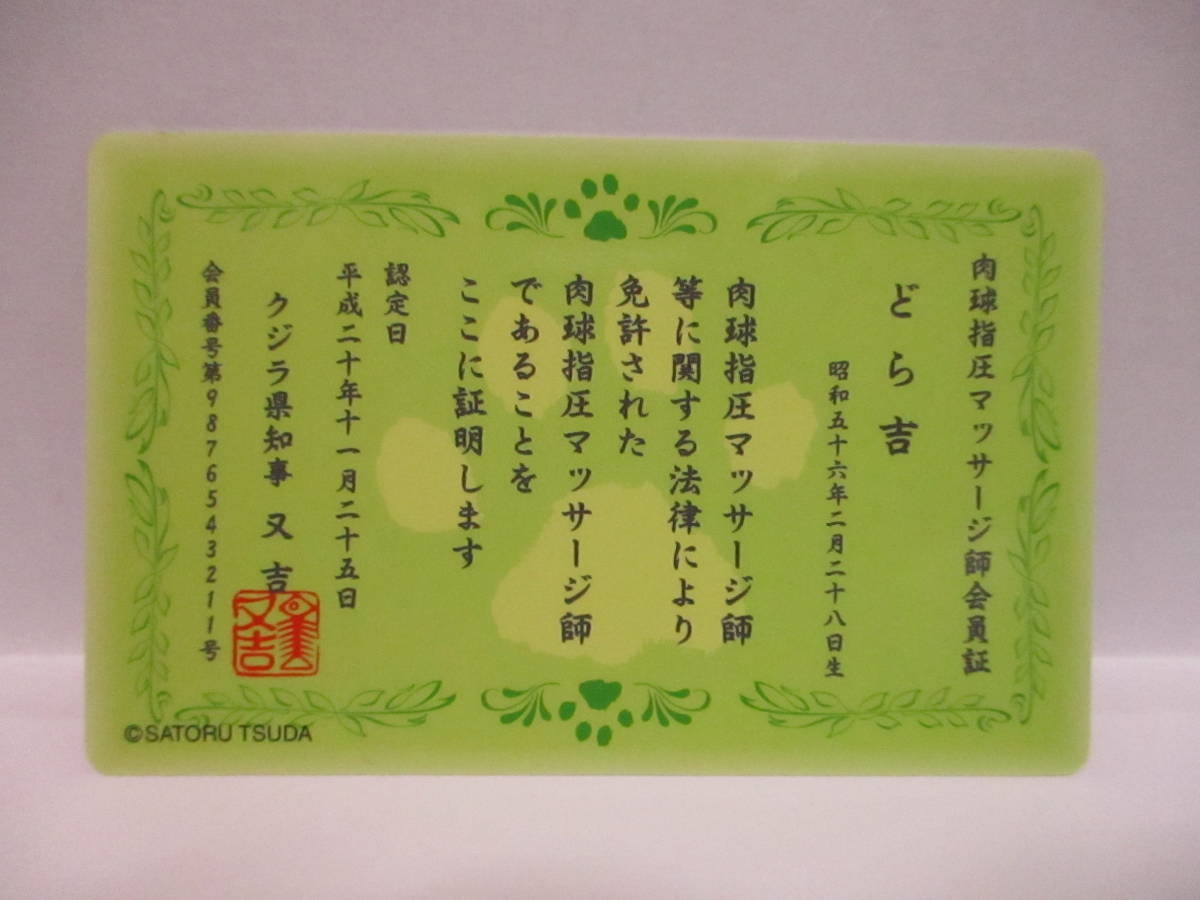 肉球指圧マッサージ師会員証
どら吉
昭和五十六年二月二十八日生
肉球指圧マッサージ師
等に関する法律により
免許された
肉球指圧マッサージ師
であることを
ここに証明します
認定日
平成二十年十一月二十五日
クジラ県知事 又吉
会員番号第9876543211号
又吉
©SATORU TSUDA